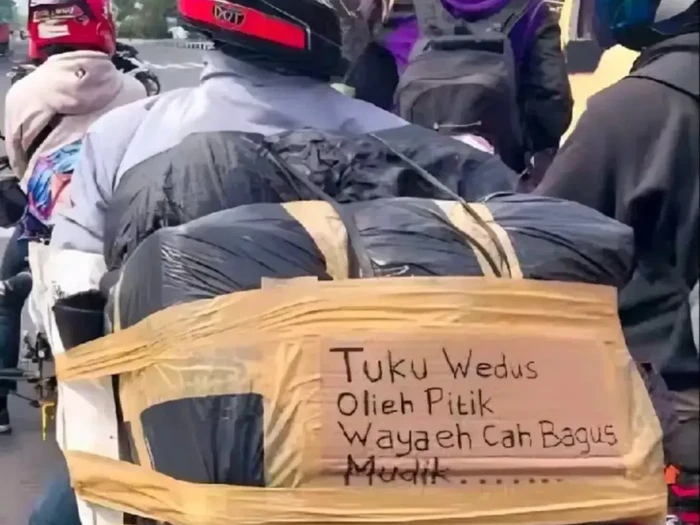 Tuku Wedus
Olieh Pitik
Wayaeh Cah Bagus
Mudik........